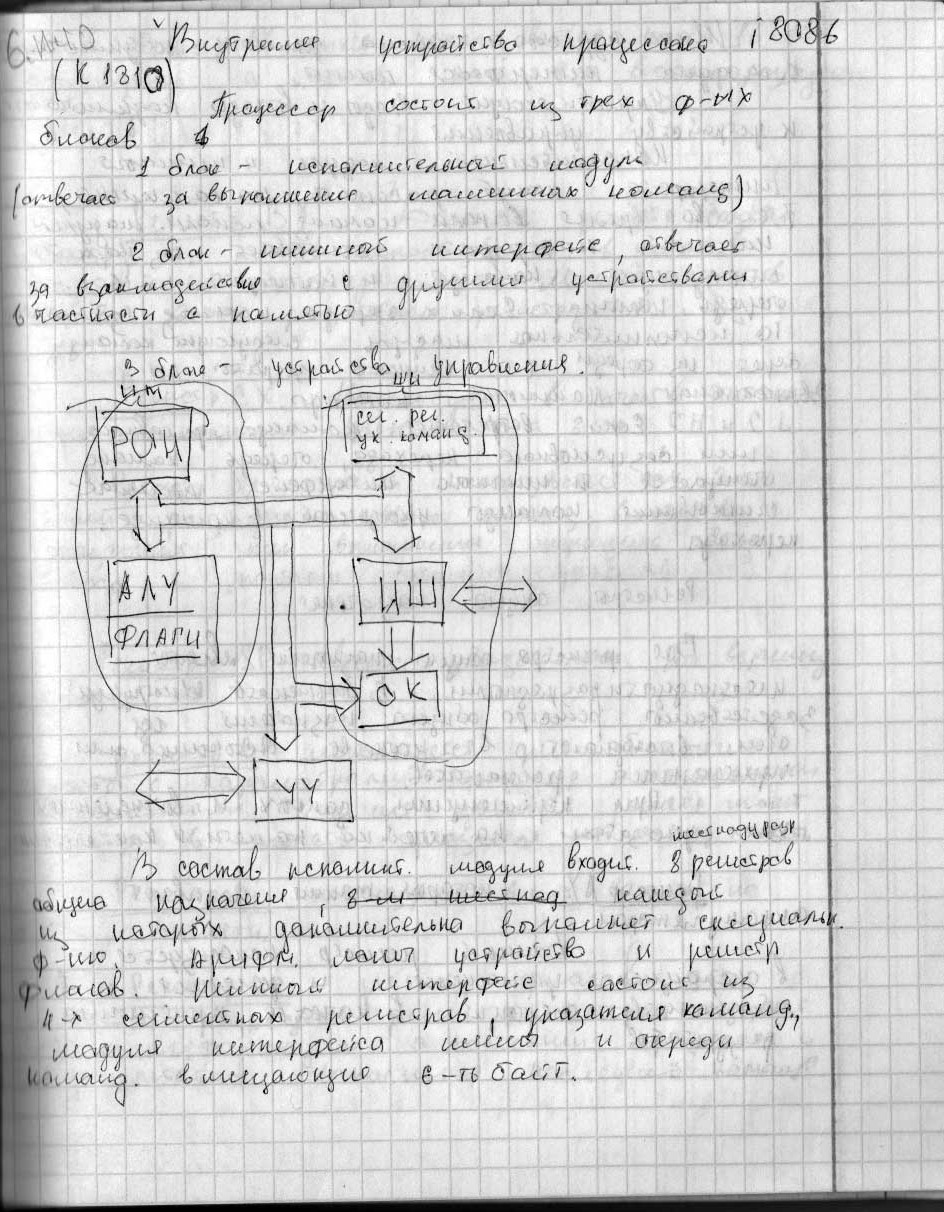 Внутреннее устройство процессора i 8086
(К 1810)
Процессор состоит из трех ф-ых
блоков
1 блок - исполнительный модуль
(отвечает за выполнение машинных команд)
2 блок - шинный интерфейс, отвечает
за взаимодействие с другими устройствами
в частности с памятью
3 блок - устройства управления.
ИМ
ШИ
РОН
сег. рег.
ук. команд.
АЛУ
ФЛАГИ
ИШ
ОК
УУ
шестнадцразр
В состав исполнит. модуля входит. 8 регистров
общего назначения, 8-м шестнад каждый
из которых дополнительно выполняет специальн.
ф-цию. Арифм. логич устройство и регистр
флагов. Шинный интерфейс состоит из
4-х сегментных регистров, указателя команд,
модуля интерфейса шины и очереди
команд. вмещающие 6-ть байт.